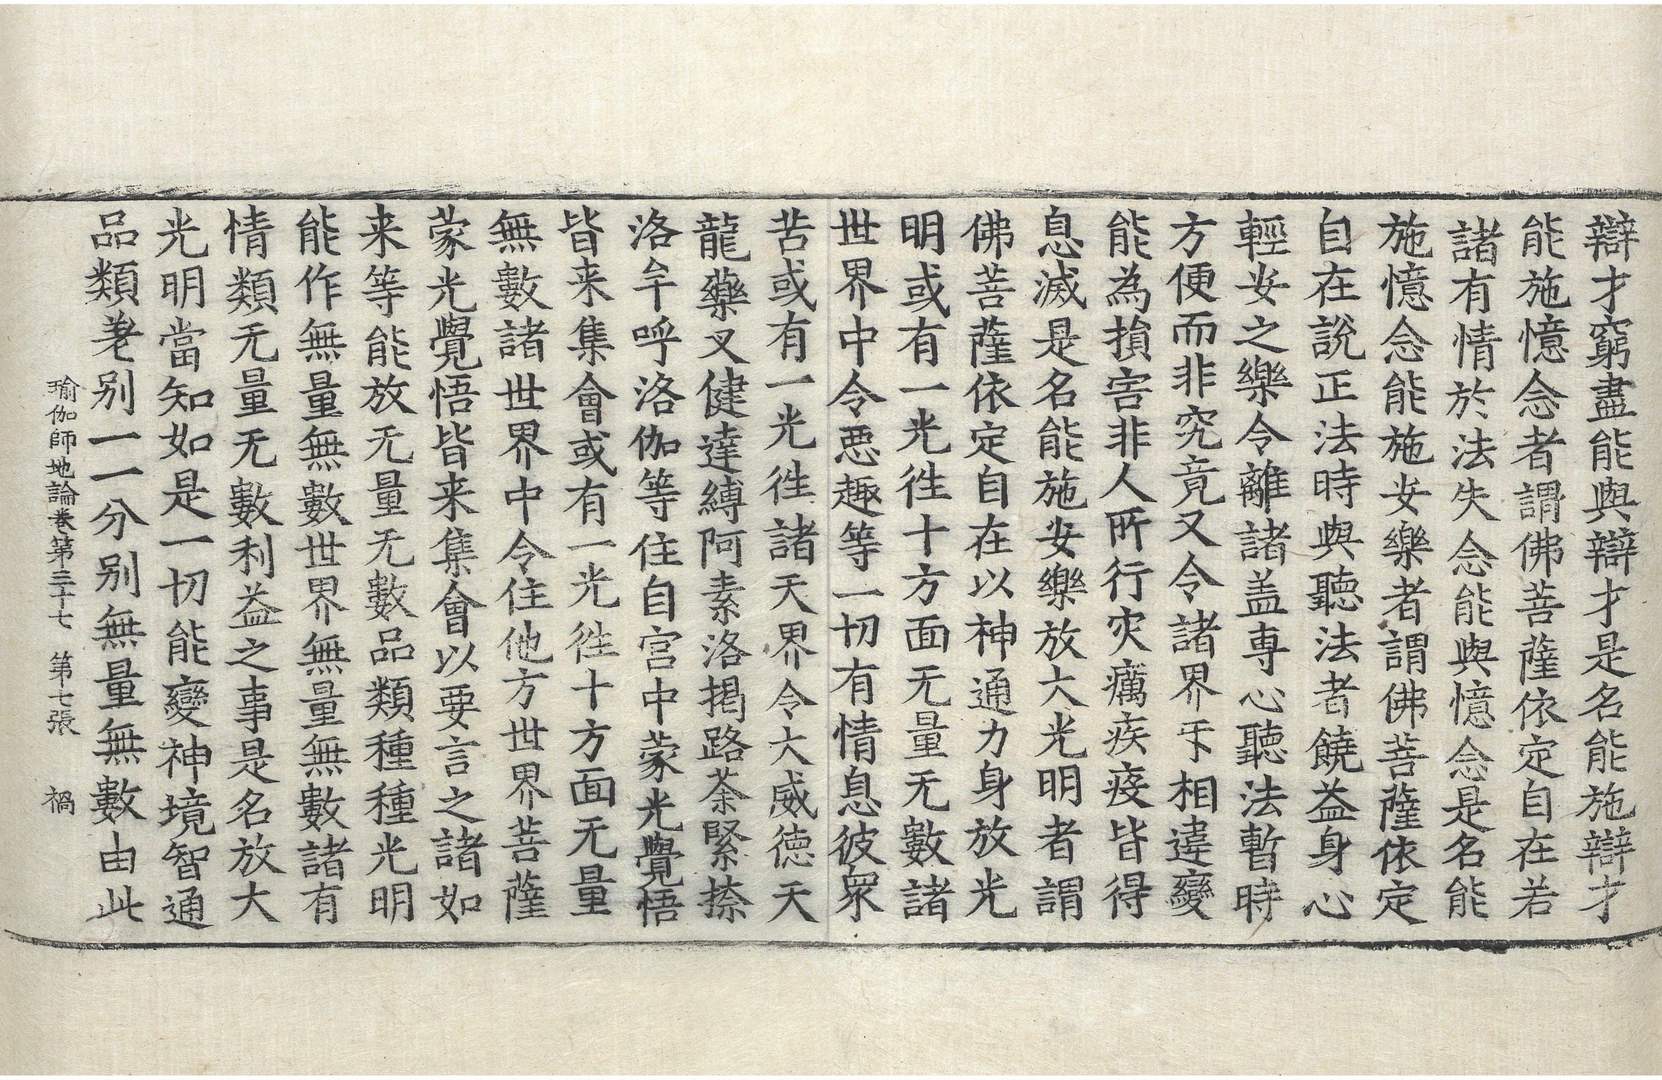 辯才窮盡能與辯才是名能施辯才
能施憶念者謂佛菩薩依定自在若
諸有情於法失念能與憶念是名能
施憶念能施安樂者謂佛菩薩依定
自在說正法時與聽法者饒益身心
輕安之樂令離諸盖專心聽法暫時
方便而非究竟又令諸界㸦相違變
能為損害非人所行灾癘疾疫皆得
息滅是名能施安樂放大光明者謂
佛菩薩依定自在以神通力身放光
明或有一光徃十方面无量无數諸
世界中令惡趣等一切有情息彼衆
苦或有一光徃諸天界令大威德天
龍藥叉健達縛阿素洛揭路荼緊捺
洛牟呼洛伽等住自宫中蒙光覺悟
皆来集會或有一光徃十方面无量
無數諸世界中令住他方世界菩薩
蒙光覺悟皆来集會以要言之諸如
来等能放无量无數品類種種光明
能作無量無數世界無量無數諸有
情類无量无數利益之事是名放大
光明當知如是一切能變神境智通
品類差别一一分别無量無數由此
瑜伽師地論卷第三十七　第七張　禍